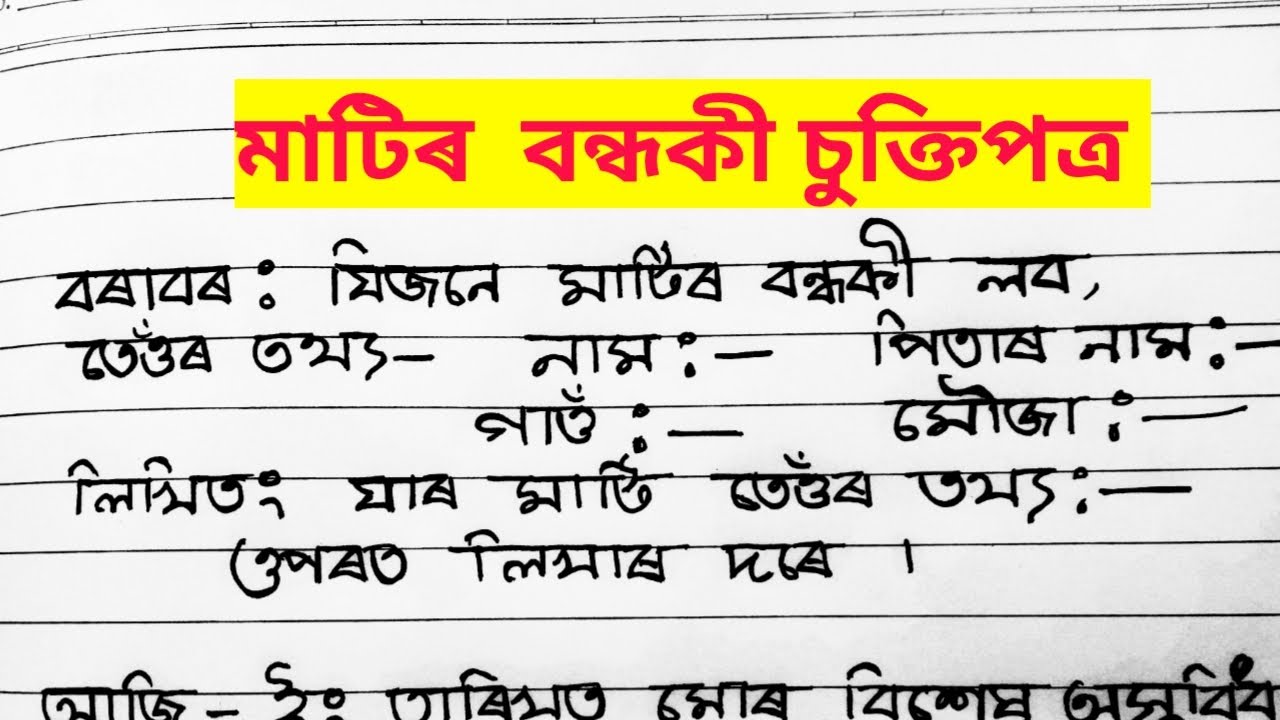 মাটিৰ বন্ধকী চুক্তিপত্ৰ
বৰাবৰ: যিজনে মাটিৰ বন্ধকী লব,
তেওঁৰ তথ্য- নাম :- পিতাৰ নাম :-
গাওঁ :- মৌজা :-
লিখিতং যাৰ মাটি তেওঁৰ তথ্য :-
ওপৰত লিখাৰ দৰে ।
আজি - ইং তাৰিখত মোৰ বিশেষ